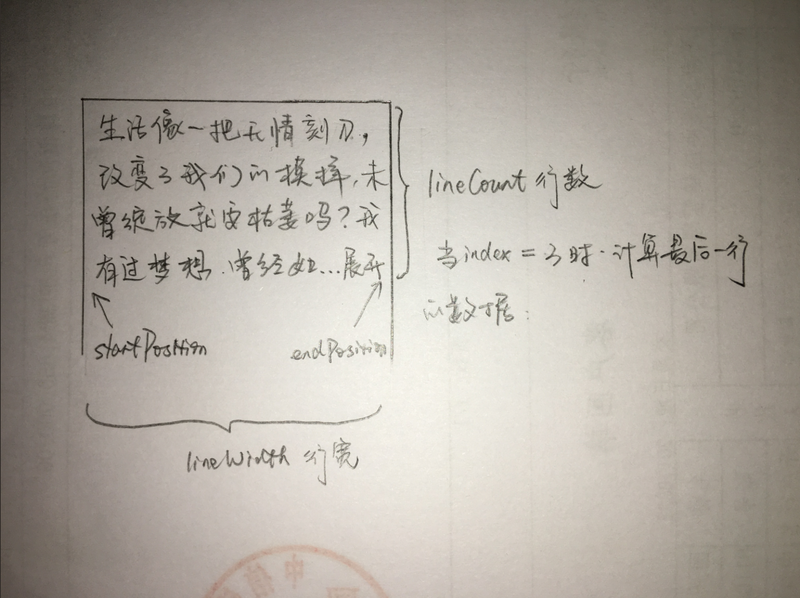 生活像一把无情刻刀，
改变了我们的模样，未
曾绽放就要枯萎吗？我
有过梦想，曾经如...展开
startPosition
endPosition
lineWidth 行宽
lineCount 行数
当index = 3时，计算最后一行
的数据：
中信